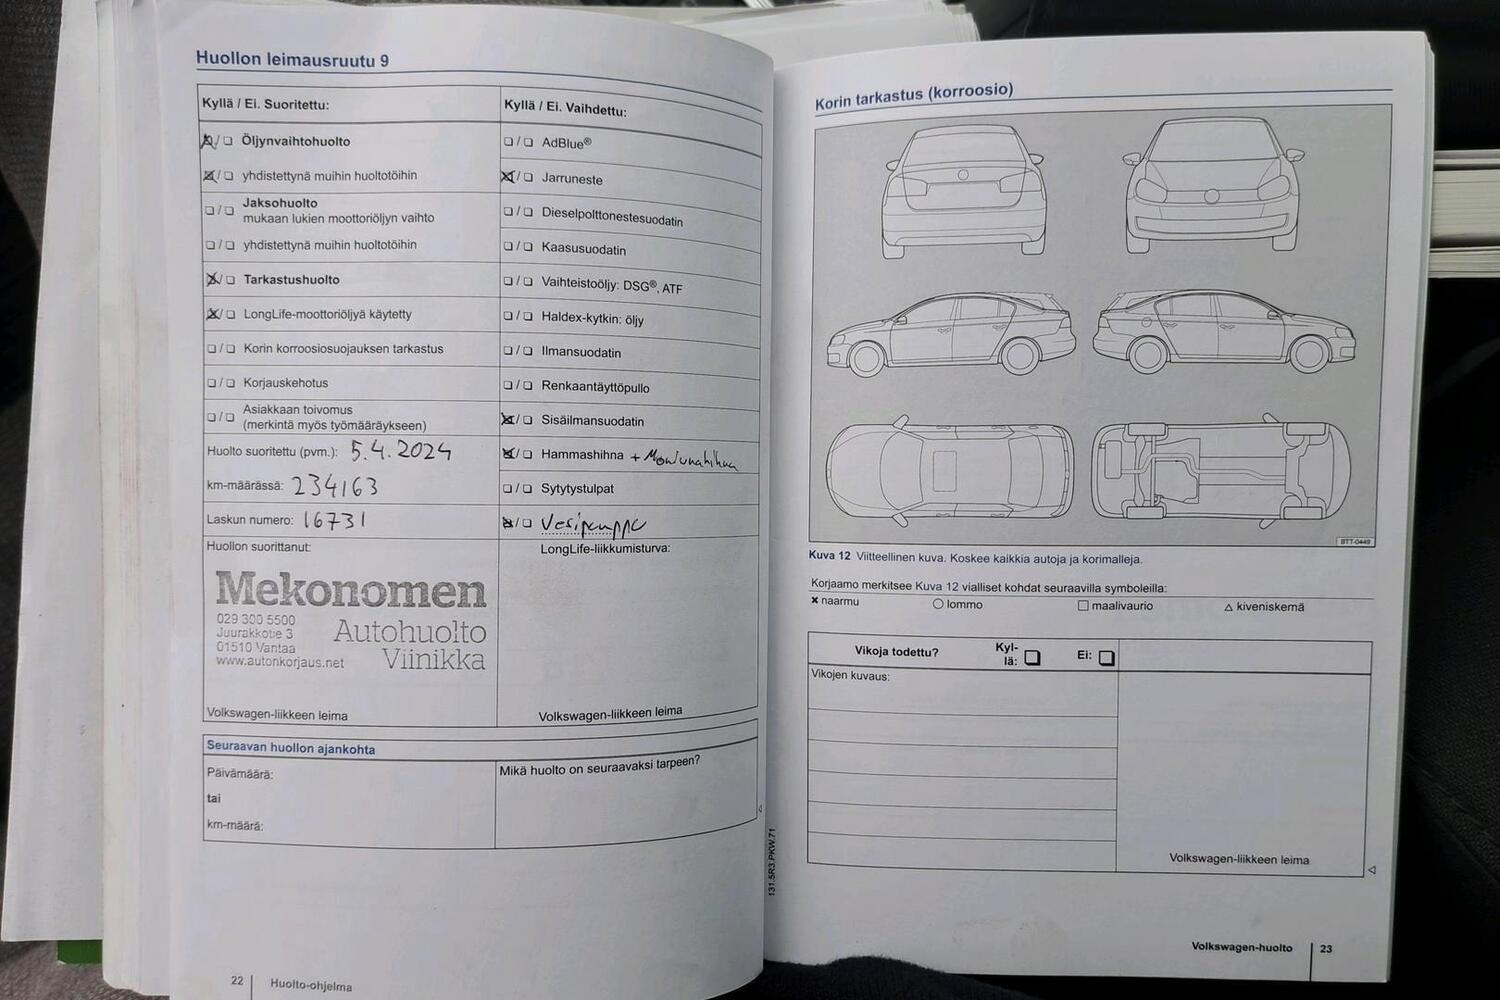 Huollon leimausruutu 9
Kyllä / Ei. Suoritettu:
Öljynvaihtohuolto
yhdistettynä muihin huoltotöihin
Jaksohuolto
mukaan lukien moottoriöljyn vaihto
yhdistettynä muihin huoltotöihin
Tarkastushuolto
LongLife-moottoriöljyä käytetty
Korin korroosiosuojauksen tarkastus
Korjauskehotus
Asiakkaan toivomus
(merkintä myös työmääräykseen)
Huolto suoritettu (pvm.): 5.4.2024
km-määrässä: 234163
Laskun numero: 16731
Huollon suorittanut:
Mekonomen
029 300 5500
Juurakkotie 3
01510 Vantaa
www.autonkorjaus.net
Autohuolto
Viinikka
Volkswagen-liikkeen leima
Kyllä / Ei. Vaihdettu:
AdBlue®
Jarruneste
Dieselpolttonestesuodatin
Kaasusuodatin
Vaihteistoöljy: DSG®, ATF
Haldex-kytkin: öljy
Ilmansuodatin
Renkaantäyttöpullo
Sisäilmansuodatin
Hammashihna + Moniurahihna
Sytytystulpat
Vesipumppu
LongLife-liikkumisturva:
Volkswagen-liikkeen leima
Seuraavan huollon ajankohta
Päivämäärä:
tai
km-määrä:
Mikä huolto on seuraavaksi tarpeen?
22 Huolto-ohjelma
131.5R3.PKW.71
Korin tarkastus (korroosio)
BTT-0449
Kuva 12 Viitteellinen kuva. Koskee kaikkia autoja ja korimalleja.
Korjaamo merkitsee Kuva 12 vialliset kohdat seuraavilla symboleilla:
✖ naarmu ○ lommo □ maalivaurio △ kiveniskemä
Vikoja todettu? Kyl-
lä: Ei:
Vikojen kuvaus:
Volkswagen-liikkeen leima
Volkswagen-huolto 23